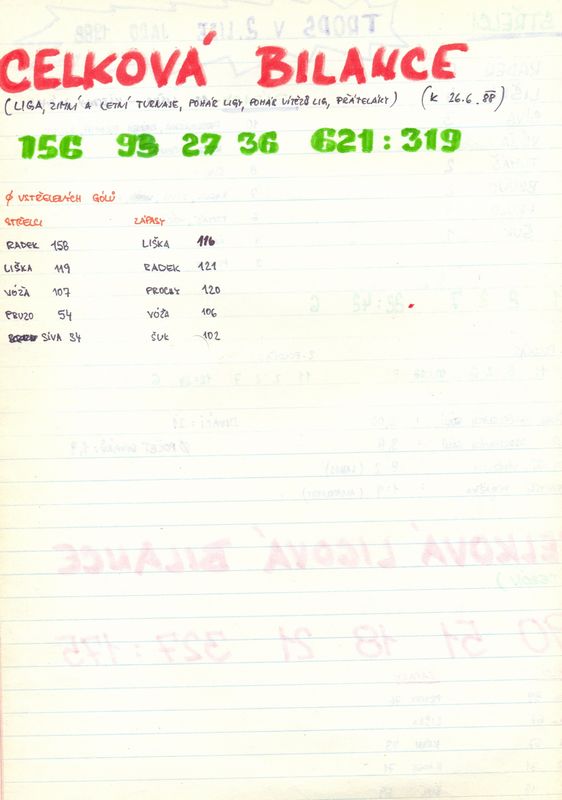 CELKOVÁ BILANCE
(LIGA, ZIMNÍ A LETNÍ TURNAJE, POHÁR LIGY, POHÁR VÍTĚZŮ LIG, PŘÁTELÁKY) (K 26.6. 88)
156 93 27 36 621:319
Ø VSTŘELENÝCH GÓLŮ
STŘELCI ZÁPASY
RADEK 158 LIŠKA
LIŠKA 119 RADEK 121
VÓŽA 107 PROCHY 120
PRUZO 54 VÓŽA 106
SÍVA 34 ŠUK 102